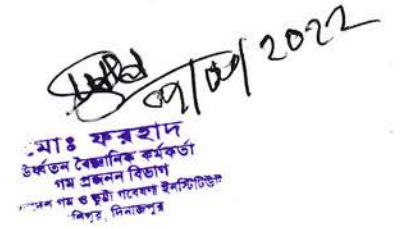 ২০২২
মাঃ ফরহাদ
উর্ধ্বতন বৈজ্ঞানিক কর্মকর্তা
গম প্রজনন বিভাগ
গম ও ভুট্টা গবেষণা ইনস্টিটিউট
নশিপুর, দিনাজপুর